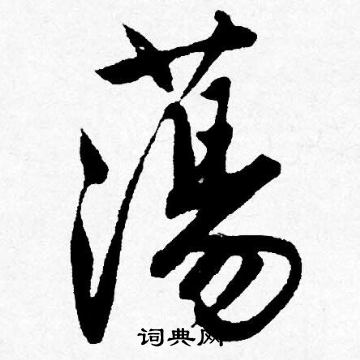 蕩
词典网